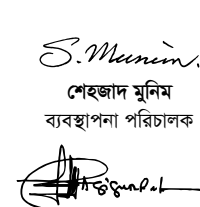 S. Munim.
শেহজাদ মুনিম
ব্যবস্থাপনা পরিচালক